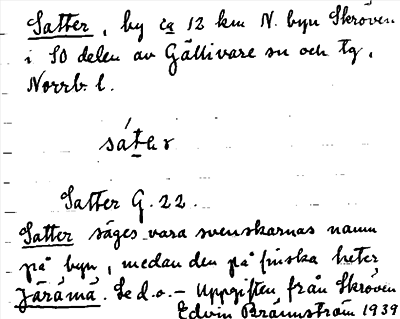 Satter, by ca 12 km N. byn Skröven
i SO delen av Gällivare sn och tg,
Norrb. l.
sáter
Satter G. 22.
Satter säges vara svenskarnas namn
på byn, medan den på finska heter
Järämä. Se d.o. – Uppgiften från Skröven
Edvin Brännström 1939